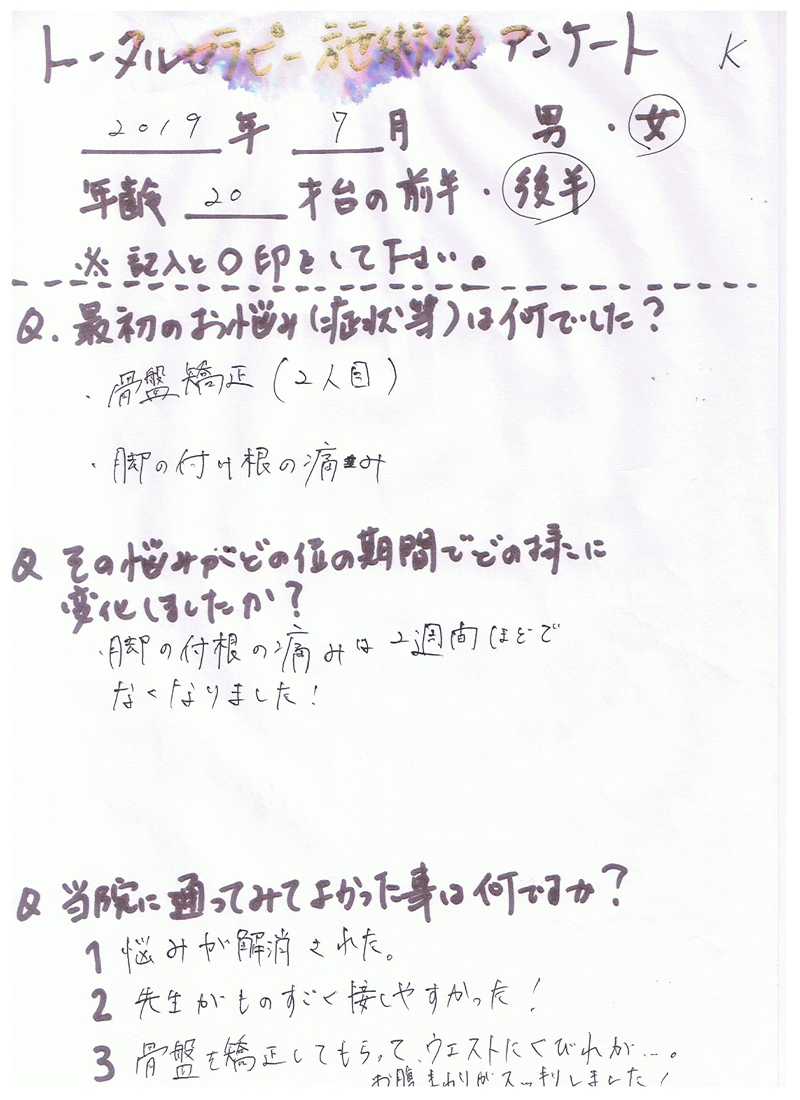 トータルセラピー施術後 アンケート K
2019年 7月 男・女
年齢 20 才台の前半・後半
※記入と○印をして下さい。
Q. 最初のお悩み(症状等)は何でした?
・骨盤矯正(2人目)
・脚の付け根の痛み
Q その悩みがどの位の期間でどの様に
変化しましたか?
・脚の付根の痛みは2週間ほどで
なくなりました!
Q 当院に通ってみてよかった事は何ですか?
1 悩みが解消された。
2 先生がものすごく接しやすかった!
3 骨盤を矯正してもらって、ウエストにくびれが…。
お腹まわりがスッキリしました!